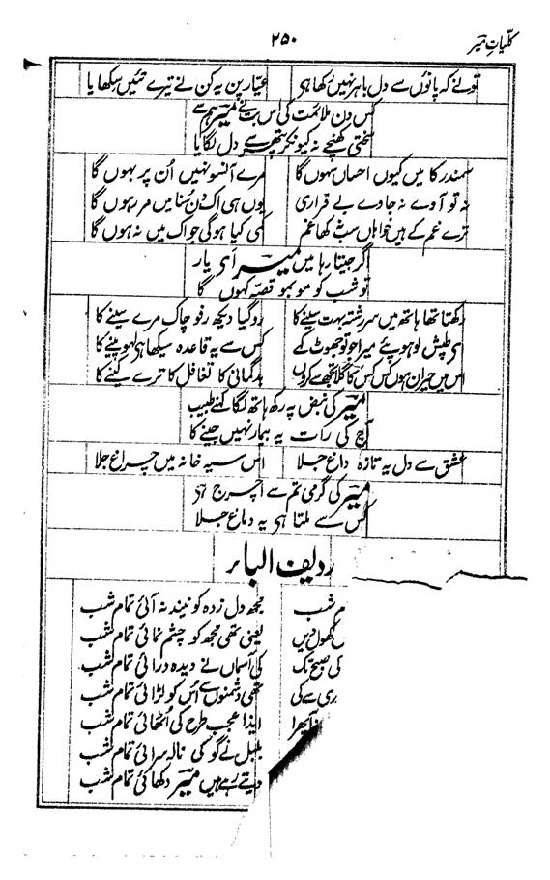 کلیاتِ میر
۲۵۰
تونے کہ پانوں سے دل باہر نہیں رکھا ہی عیّار پن یہ کن نے تیرے تئیں سکھایا
کس دن ملائمت کی اس بت نے میر ہم سے
سختی کھنچے نہ کیونکر پتھر سے دل لگایا
سمندر کا میں کیوں احساں سہوں گا مرے آنسو نہیں اُن پر بہوں گا
نہ تو آوے نہ جاوے بے قراری یوں ہی اک دن سُنا میں مر رہوں گا
ترے غم کے ہیں خواہاں سب نہ کھا غم کمی کیا ہوگی جو اک میں نہ ہوں گا
اگر جیتا رہا میں میر آی یار
تو شب کو مو بمو قصّہ کہوں گا
رکھتا تھا ہاتھ میں سررشتہ بہت سینے کا رہ گیا دیکھ رفو چاک مرے سینے کا
ای طپش لوہو پئے میرا جو تو جھوٹ کہے کس سے یہ قاعدہ سیکھا ہی لہو پینے کا
اس میں حیران ہوں کس کس کا گلا تجھ سے کروں بدگمانی کا تغافل کا ترے کینے کا
میر کی نبض پہ رکھ ہاتھ لگا کہنے طبیب
آج کی رات یہ بیمار نہیں جینے کا
عشق سے دل پہ تازہ داغ جلا اس سیہ خانہ میں چراغ جلا
میر کی گرمی تم سے اچرج ہی
کس سے ملتا ہی یہ دماغ جلا
ردیف البائر
م شب مجھ دل زدہ کو نیند نہ آئی تمام شب
کھول دیں یعنی تھی مجھ کو چشم نمائی تمام شب
کی صبح تک کی آسماں نے دیدہ درائی تمام شب
ری سے کی تھی دشمنوں سے اُس کو لڑائی تمام شب
بھرا ایذا عجب طرح کی اُٹھائی تمام شب
بلبل نے گو کی نالہ سرائی تمام شب
دیتے رہے ہیں میر دکھائی تمام شب